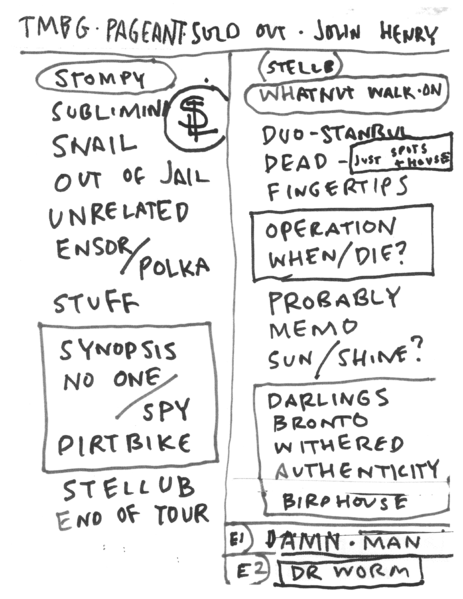 TMBG · PAGEANT · SOLD OUT · JOHN HENRY
STOMPY
SUBLIMINL
$
SNAIL
OUT OF JAIL
UNRELATED
ENSOR/
POLKA
STUFF
SYNOPSIS
NO ONE/
SPY
DIRTBIKE
STELLUB
END OF TOUR
STELLB
WHATNUT WALK-ON
DUO-STANBUL
DEAD - JUST SPOTS + HOUSE
FINGERTIPS
OPERATION
WHEN/DIE?
PROBABLY
MEMO
SUN/SHINE?
DARLINGS
BRONTO
WITHERED
AUTHENTICITY
BIRDHOUSE
E1) DAMN · MAN
E2) DR WORM